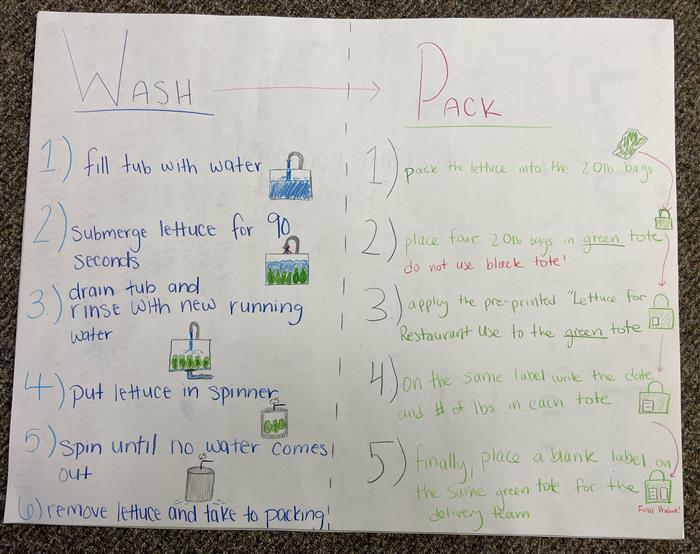 WASH
1) fill tub with water
2) submerge lettuce for 90
seconds
3.) drain tub and
rinse with new running
water
4.) put lettuce in spinner
5) spin until no water comes
out
6) remove lettuce and take to packing!
PACK
1.) pack the lettuce into the 20lb bags
2) place four 20lb bags in green tote
do not use black tote!
3.) apply the pre-printed "Lettuce For
Restaurant Use to the green tote
4) on the same label write the date
and # of lbs in each tote
5) finally, place a blank label on
the same green tote for the
delivery team
Final Product!